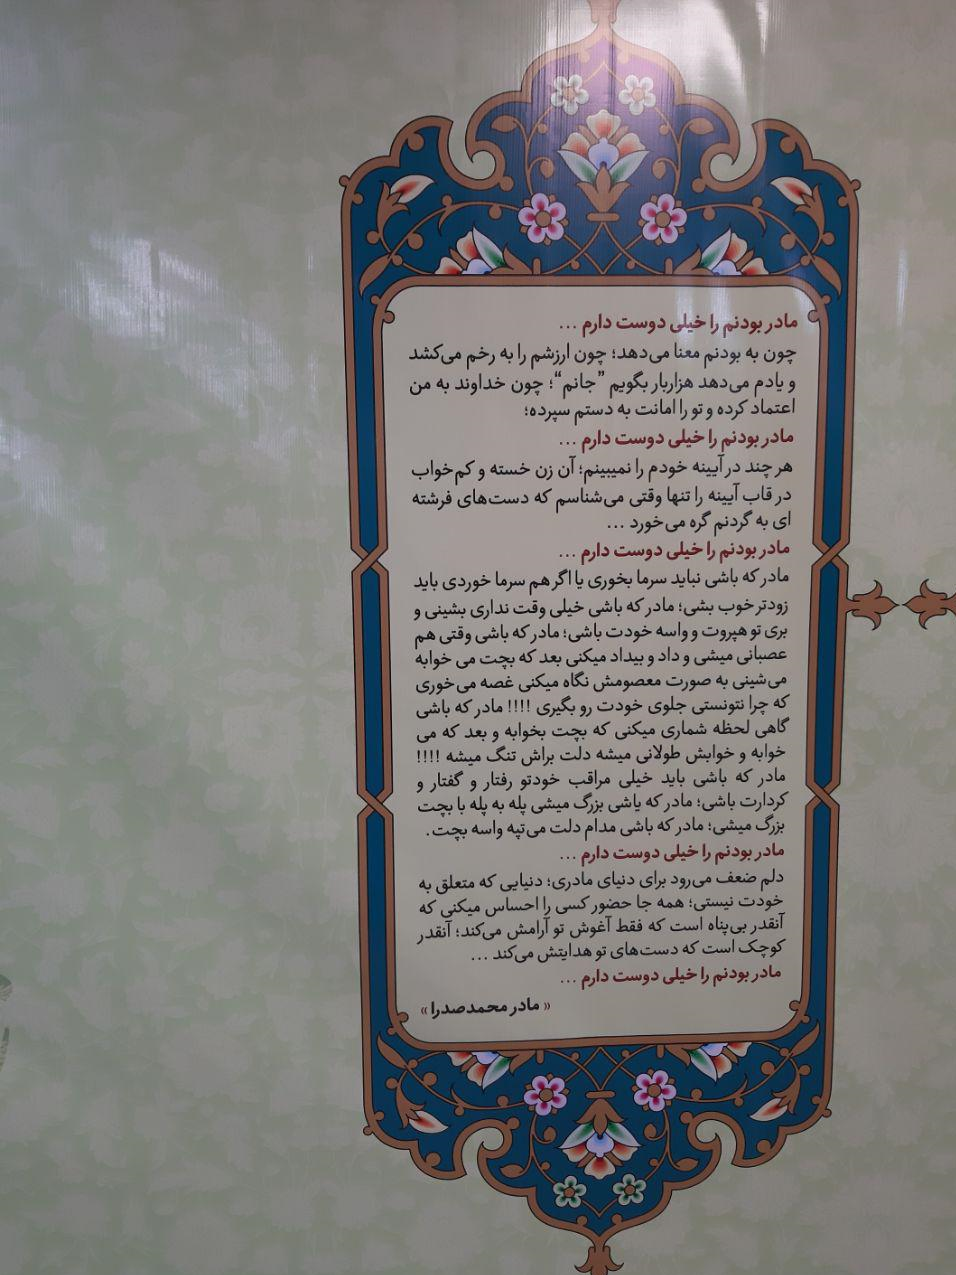 مادر بودنم را خیلی دوست دارم ...
چون به بودنم معنا می‌دهد؛ چون ارزشم را به رخم می‌کشد
و یادم می‌دهد هزاربار بگویم ”جانم“؛ چون خداوند به من
اعتماد کرده و تو را امانت به دستم سپرده؛
مادر بودنم را خیلی دوست دارم ...
هر چند در آیینه خودم را نمیبینم؛ آن زن خسته و کم‌خواب
در قاب آیینه را تنها وقتی می‌شناسم که دست‌های فرشته
ای به گردنم گره می‌خورد ...
مادر بودنم را خیلی دوست دارم ...
مادر که باشی نباید سرما بخوری یا اگر هم سرما خوردی باید
زودتر خوب بشی؛ مادر که باشی خیلی وقت نداری بشینی و
بری تو هپروت و واسه خودت باشی؛ مادر که باشی وقتی هم
عصبانی میشی و داد و بیداد میکنی بعد که بچت می خوابه
می‌شینی به صورت معصومش نگاه میکنی غصه می‌خوری
که چرا نتونستی جلوی خودت رو بگیری !!!! مادر که باشی
گاهی لحظه شماری میکنی که بچت بخوابه و بعد که می
خوابه و خوابش طولانی میشه دلت براش تنگ میشه !!!!
مادر که باشی باید خیلی مراقب خودتو رفتار و گفتار و
کردارت باشی؛ مادر که یاشی بزرگ میشی پله به پله با بچت
بزرگ میشی؛ مادر که باشی مدام دلت می‌تپه واسه بچت.
مادر بودنم را خیلی دوست دارم ...
دلم ضعف می‌رود برای دنیای مادری؛ دنیایی که متعلق به
خودت نیستی؛ همه جا حضور کسی را احساس میکنی که
آنقدر بی‌پناه است که فقط آغوش تو آرامش می‌کند؛ آنقدر
کوچک است که دست‌های تو هدایتش می‌کند ...
مادر بودنم را خیلی دوست دارم ...
« مادر محمدصدرا »